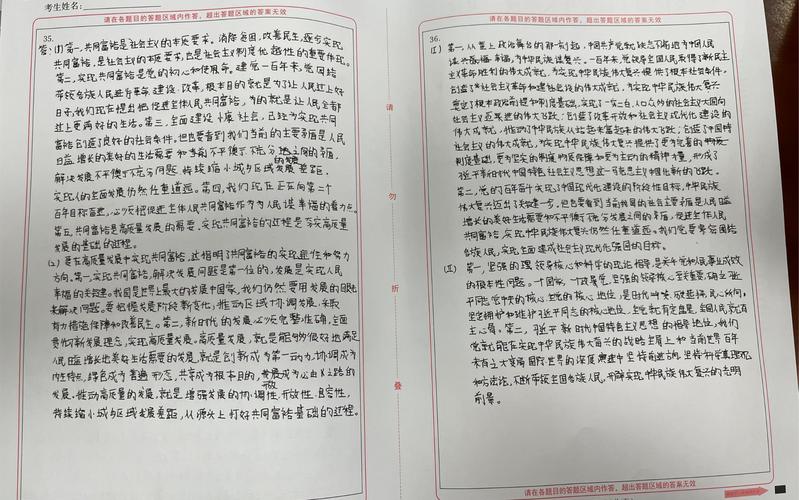 考生姓名：
请在各题目的答题区域内作答，超出答题区域的答案无效
35.
答：(1) 第一，共同富裕是社会主义的本质要求。消除贫困，改善民生，逐步实现
共同富裕，是社会主义的本质要求，也是社会主义制度优越性的重要体现。
第二，实现共同富裕是党的初心和使命。建党一百年来，党团结
带领各族人民进行革命、建设、改革，根本目的就是为了让人民过上好
日子，我们现在提出把促进全体人民共同富裕，为的就是让人民全都
过上更满的生活。第三，全面建设小康社会，已经为实现共同
富裕创造了良好的社会条件。但也要看到我们当前的主要矛盾是人民
日益增长的美好生活需要和当前不平衡不充分的之间的矛盾，
解决发展不平衡不充分问题 持续缩小城乡区域发展差距，
实现人的全面发展仍然任重道远。第四，我们现在正在向第二个
百年目标奋进，必须把促进全体人民共同富裕作为为人民谋幸福的着力点。
第五，共同富裕是高质量发展的需要，实现共同富裕的过程是夯实高质量
发展的基础的过程。
(2) 要在高质量发展中实现共同富裕，这指明了共同富裕的实现途径和努力
方向。第一，实现共同富裕，解决发展问题是第一位的，发展是实现人民
幸福的关键。我国是世界上最大的发展中国家，我们仍然要用发展的眼光
来解决问题。要把握发展阶段新变化，推动区域协调发展，采取
有力措施保障和改善民生。第二，新时代的发展必须完整准确，全面
贯彻新发展理念，实现高质量发展，高质量发展，就是能够很好地满足
人民日益增长的美好生活需要的发展，就是创新成为第一动力，协调成为
内生特点，绿色成为普遍形态，共享成为根本目的，发展成为必由之路的
发展，推动高质量的发展，就是增强发展的协调性，开放性，包容性，
持续缩小城乡区域发展差距，从源头上打好共同富裕基础的过程。
请
勿
折
叠
请在各题目的答题区域内作答，超出答题区域的答案无效
36.
(Ⅰ) 第一，从登上政治舞台的那一刻起，中国共产党就矢志不渝地为中国人民
谋幸福，为中华民族谋复兴。一百年来，党领导全国人民取得了新民主
主义革命胜利的伟大成就，为实现中华民族伟大复兴提供了根本社会条件。
创造了社会主义革命和建设的伟大成就，为实现中华民族伟大复兴
奠定了根本政治前提和制度基础，实现了一穷二白，人口众多的社会主义大国向
社会主义迈进的伟大飞跃；创造了改革开放和社会主义现代化建设的
伟大成就，推动了中华民族从站起来富起来的伟大飞跃；创造了中国特
社会主义的伟大成就，为实现中华民族伟大复兴提供了更为完善的
制度基础，更为坚实的物质保障和更为主动的精神力量，形成了
习近平新时代中国特色社会主义思想
第二，党的百年奋斗实现了中国现代化建设的阶段性目标，中华民族
伟大复兴迈出了关键一步，但也要看到当前我国的社会主要矛盾是人民日益
增长的美好生活需要和不平衡不充分发展之间的矛盾，促进全体人民
共同富裕，实现中华民族伟大复兴仍然任重道远。我们党要带领团结
各族人民，实现全面建成社会主义现代化强国的目标。
(Ⅱ) 第一，坚强的领导核心和科学的理论指导，是关乎党和人民事业成败
的根本性问题。一个国家，一个政党，坚强的领导核心至关重要，确立习近
平同志党中央的核心，全党的核心地位，是时代呼唤，众望所归，民心所向，
坚定拥护和维护习近平同志的核心地位，全党就有定盘星，全国人民就有
主心骨。第二，习近平新时代中国特色主义思想的指导地位，我们
党就能在实现中华民族伟大复兴的战略全局上和当前世界百年
未有之大变局 坚持科学真理观
和方法论，不断带领全国各族人民，开辟实现中华民族伟大复兴的光明
前景。
请在各题目的答题区域内作答，超出答题区域的答案无效
请在各题目的答题区域内作答，超出答题区域的答案无效